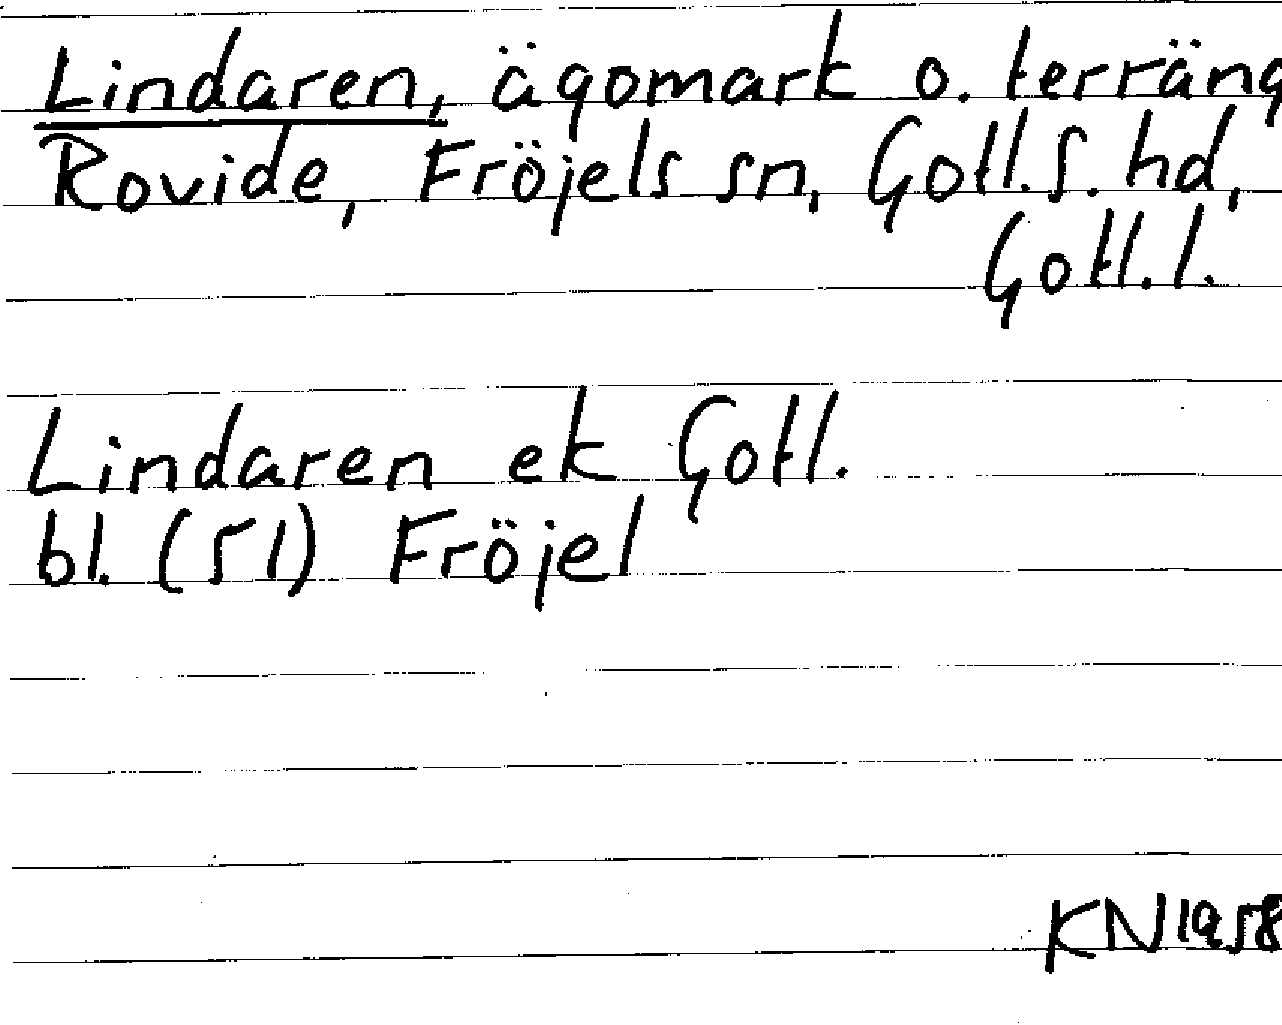 Lindaren, ägomark o. terräng
Rovide, Fröjels sn, Gotl. S. hd,
Gotl. l.
Lindaren ek Gotl.
bl. (51) Fröjel
KN 1958